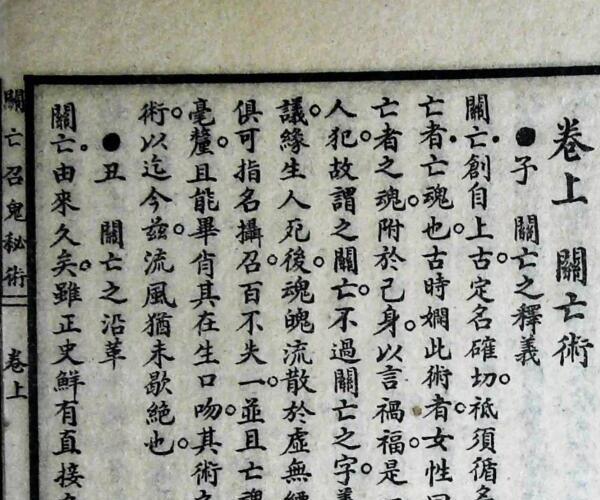 卷上　關亡術
●子　關亡之釋義
關亡創自上古。定名確切。祇須循名
亡者亡魂也。古時嫻此術者。女性
亡者之魂。附於己身。以言禍福。是
人犯。故謂之關亡。不過關亡之字義
議。緣生人死後。魂魄流散於虛無縹
俱可指名攝召。百不失一。並且亡魂
毫釐。且能畢肖其在生口吻。其術之
術。以迄今茲。流風猶未歇絕也。
●丑　關亡之沿革
關亡由來久矣。雖正史鮮有直接
關亡召鬼秘術　卷上